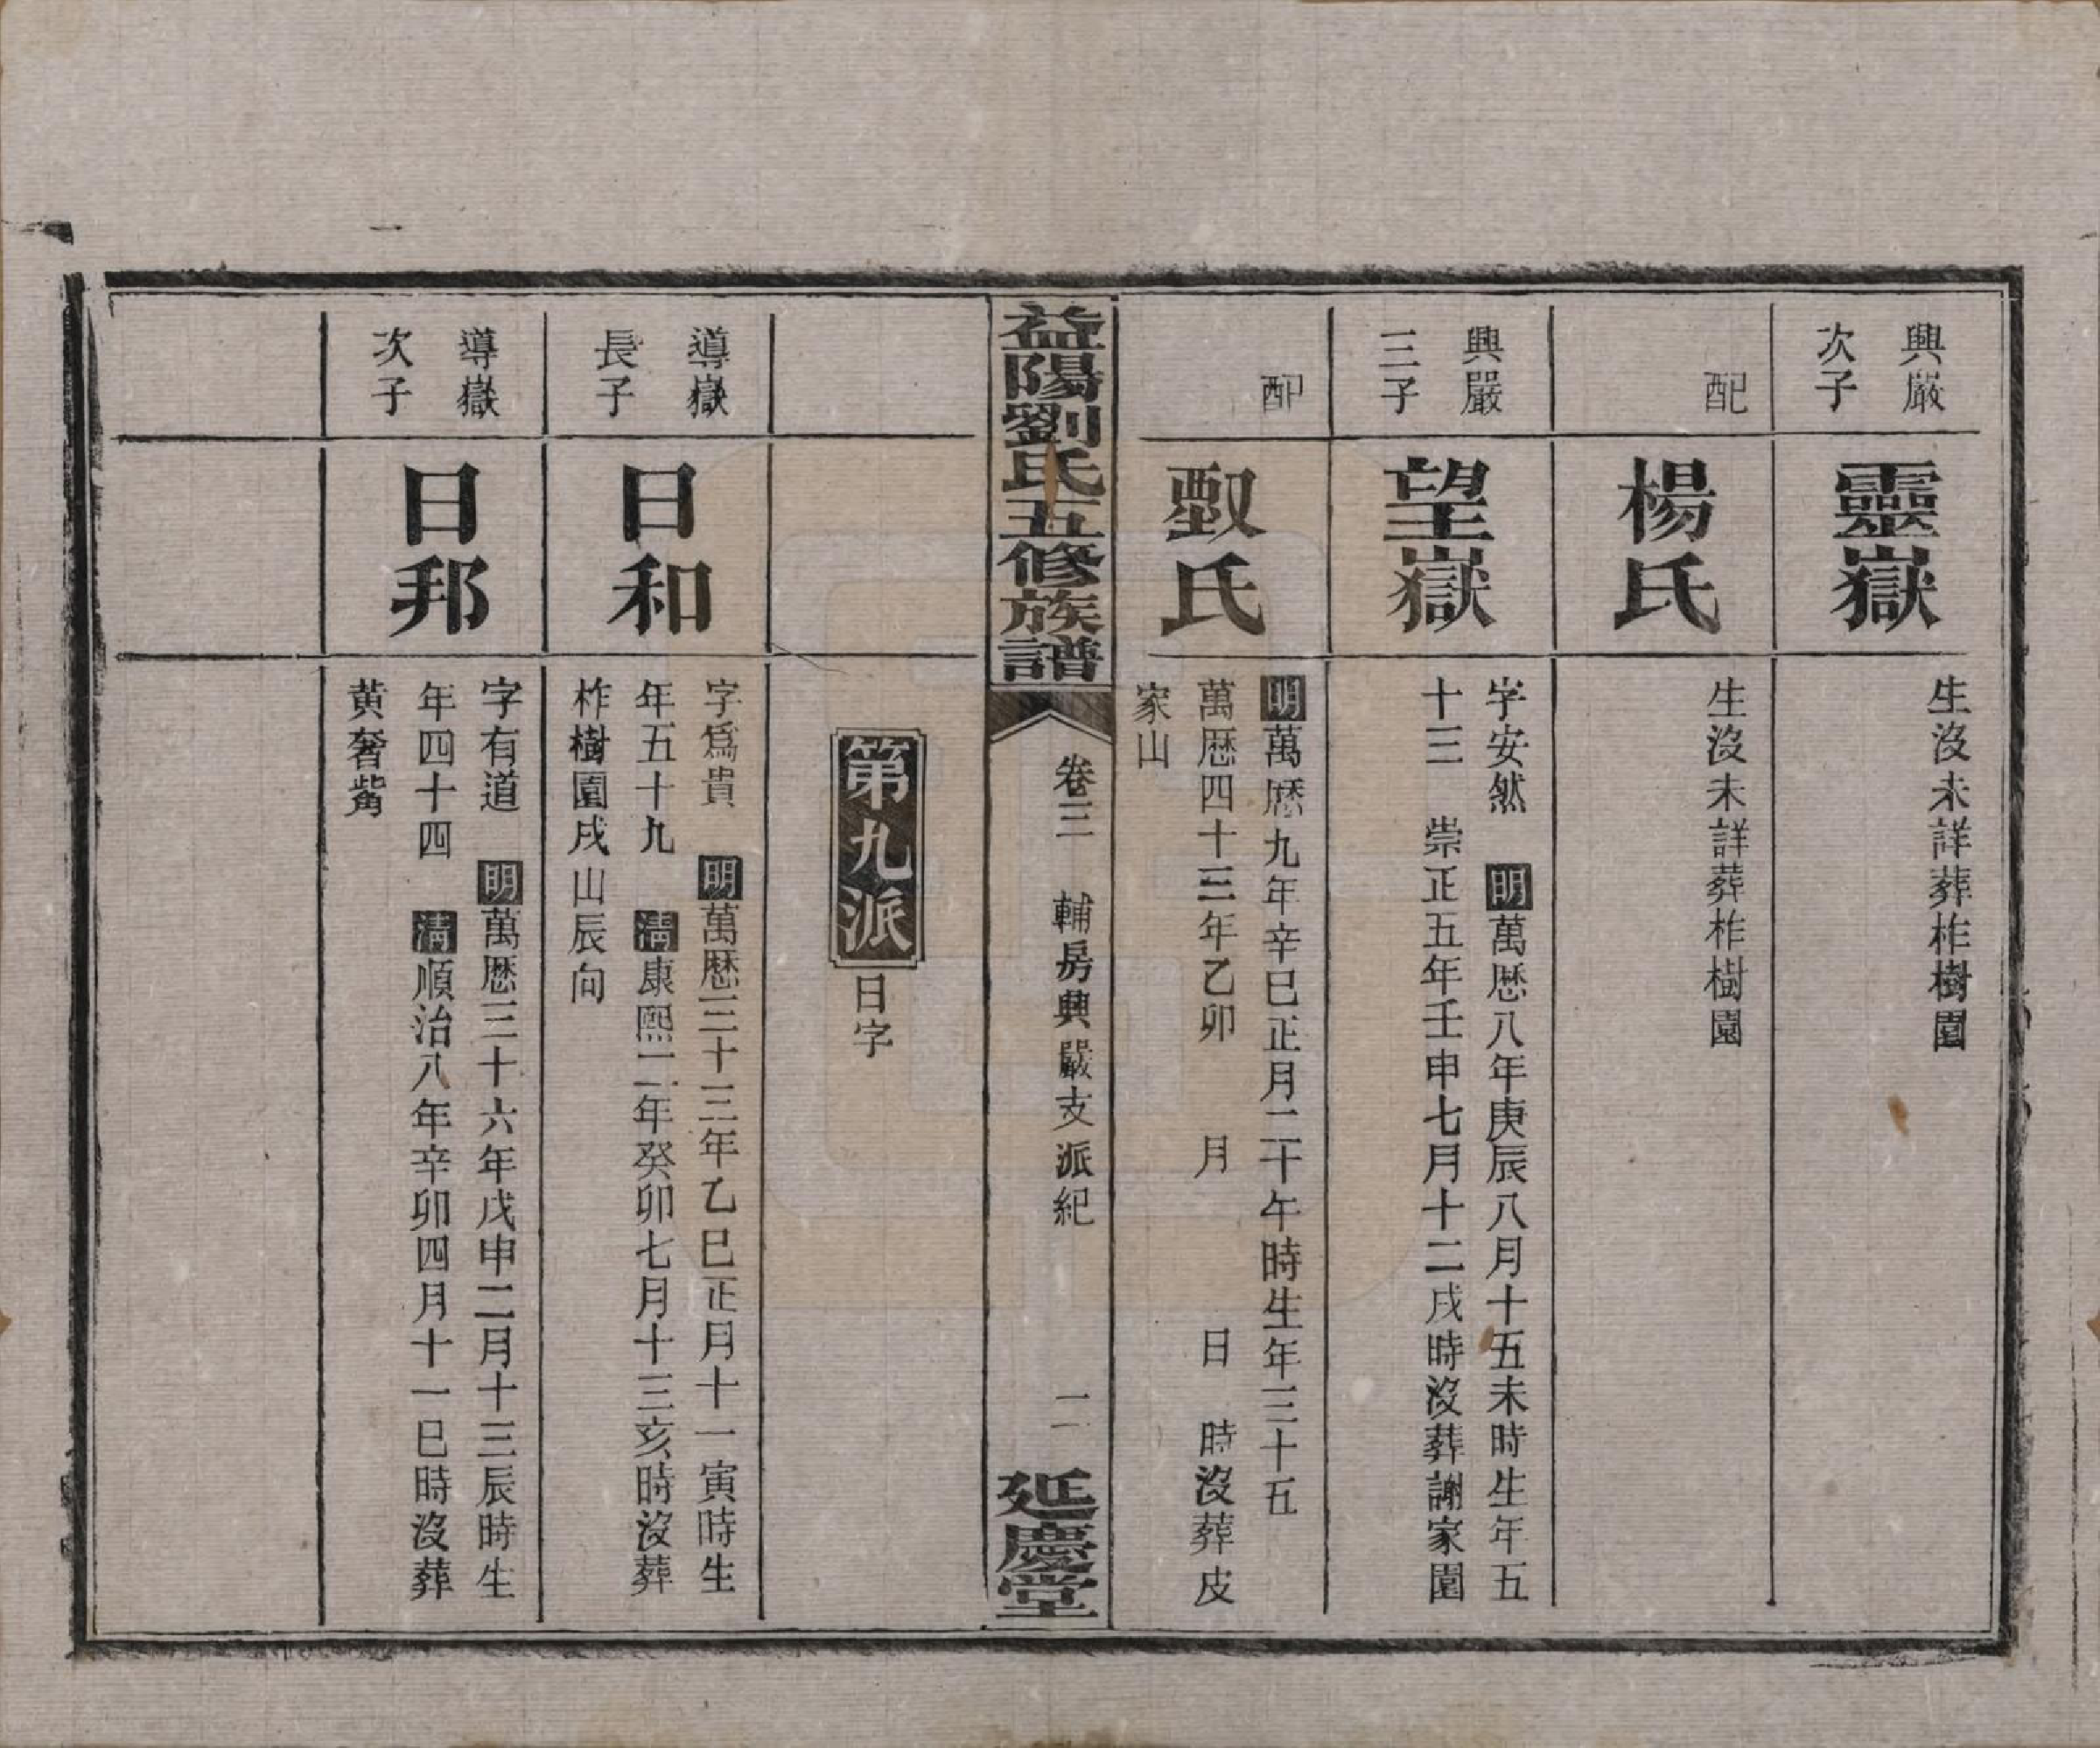 興嚴
次子
靈嶽
生沒未詳葬柞樹園
配
楊氏
生沒未詳葬柞樹園
興嚴
三子
望嶽
字安然 明萬厯八年庚辰八月十五未時生年五
十三 崇正五年壬申七月十二戌時沒葬謝家園
配
氏
明萬厯九年辛巳正月二十午時生年三十五
萬厯四十三年乙卯 月 日 時沒葬皮
家山
益陽劉氏五修族譜
卷三 輔房興嚴支派紀 二
延慶堂
第九派
日字
導嶽
長子
日和
字爲貴 明萬厯三十三年乙巳正月十一寅時生
年五十九 淸康熙二年癸卯七月十三亥時沒葬
柞樹園戌山辰向
導嶽
次子
日邦
字有道 明萬厯三十六年戊申二月十三辰時生
年四十四 淸順治八年辛卯四月十一巳時沒葬
黃奢觜